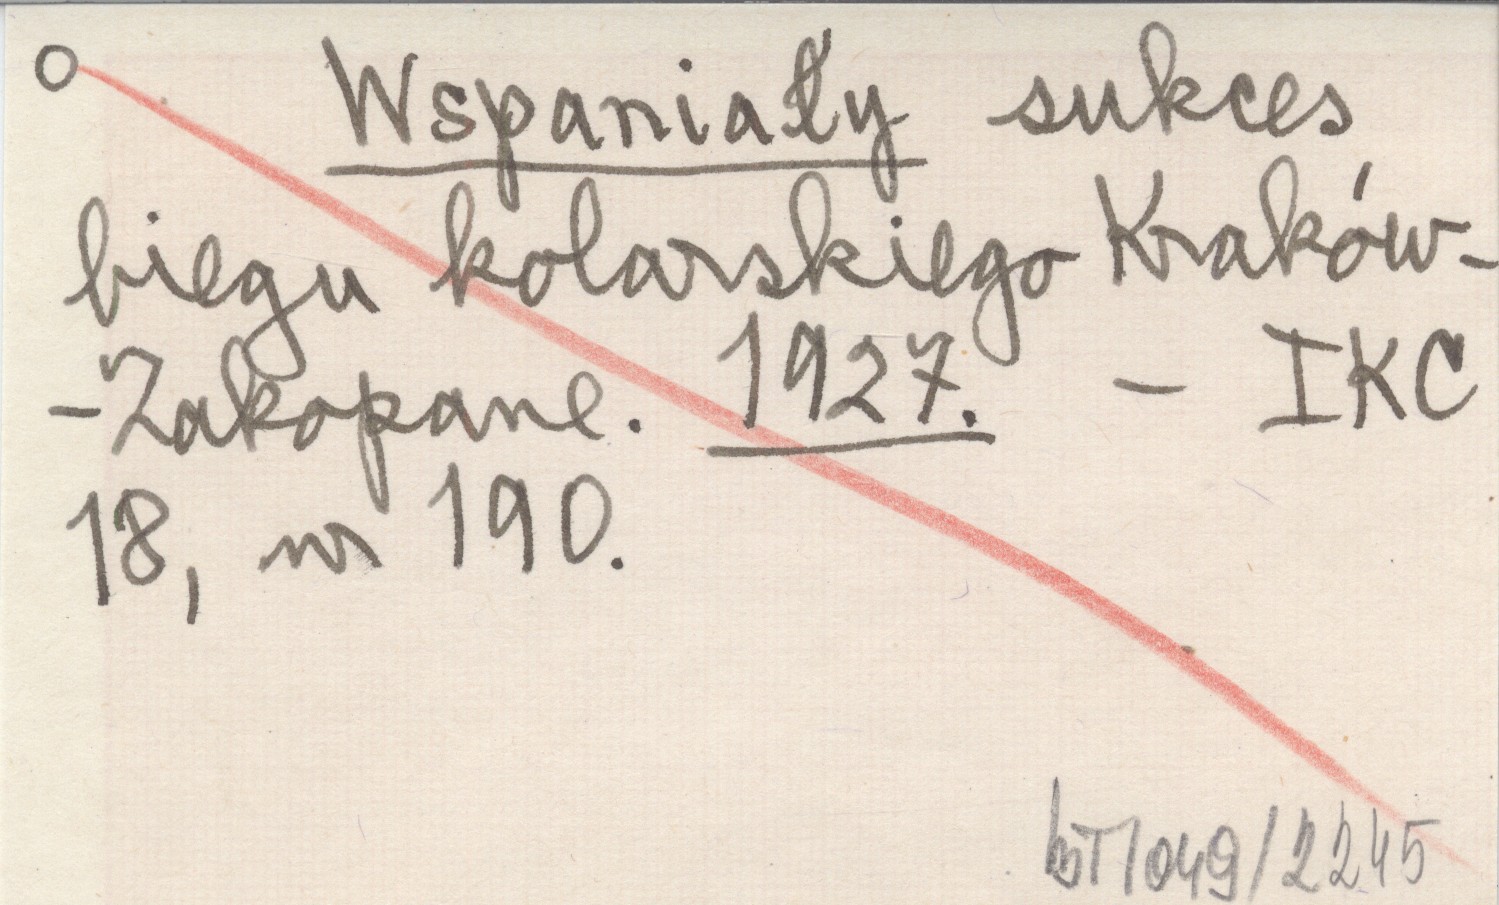 O Wspaniały sukces
biegu kolarskiego Kraków-
-Zakopane. 1927. - IKC
18, nr 190.
bT/049/2245